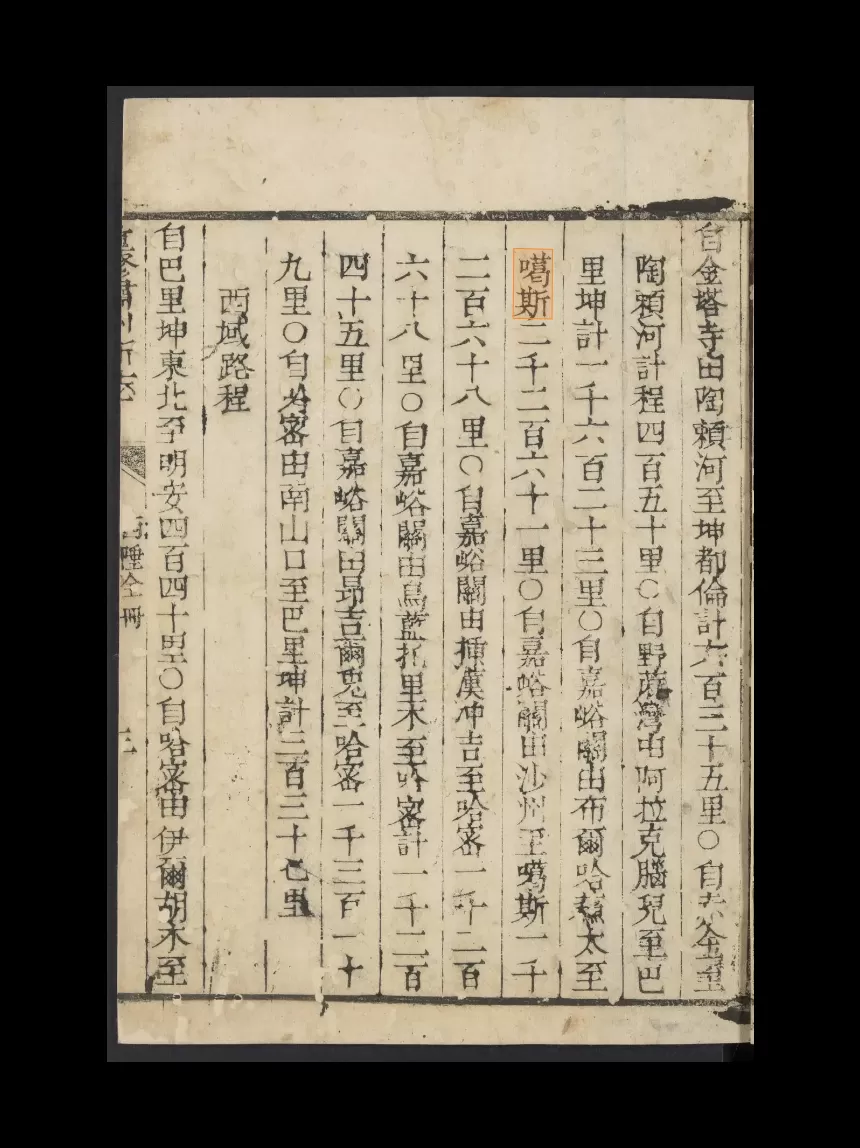 自金塔寺由陶賴河至坤都倫計六百三十五里○自赤金至
陶賴河計程四百五十里○自野蔴灣由阿拉克腦兒至巴
里坤計一千六百二十三里○自嘉峪關由布爾哈蘇太至
噶斯二千二百六十一里○自嘉峪關由沙州至噶斯一千
二百六十八里○自嘉峪關由揮漠冲吉至哈密一千二百
六十八里○自嘉峪關由烏藍托里木至哈密計一千二百
四十五里○自嘉峪關由昂吉爾兎至哈密一千三百一十
九里○自哈密由南山口至巴里坤計三百三十七里
西域路程
自巴里坤東北至明安四百四十里○自哈密由伊爾胡木至
重修肅州新志
西陲全冊
三